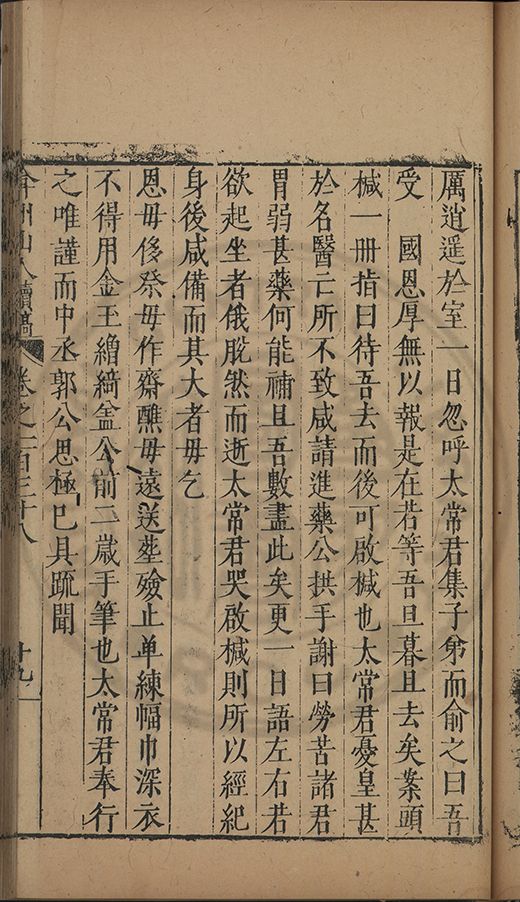 厲逍遥於室一日忽呼太常君集子弟而俞之曰吾
受　國恩厚無以報是在若等吾旦暮且去矣案頭
椷一冊指曰待吾去而後可啟椷也太常君憂皇甚
於名醫亡所不致咸請進藥公拱手謝曰勞苦諸君
胃弱甚藥何能補且吾數盡此矣更一日語左右若
欲起坐者俄脫然而逝太常君哭啟椷則所以經紀
身後咸備而其大者毋乞
恩毋侈祭毋作齋醮毋遠送塟殮止单練幅巾深衣
不得用金玉繒綺盖公前二歲手筆也太常君奉行
之唯謹而中丞郭公思極已具疏聞
弇州山人續稿　卷之一百三十八　十九